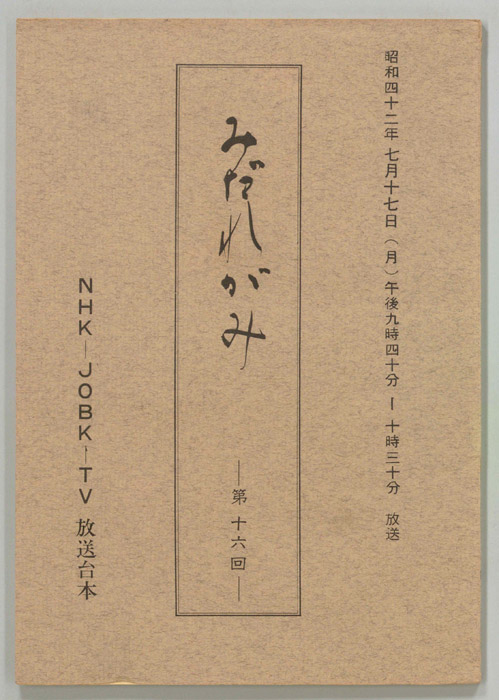 昭和四十二年 七月十七日（月）午後九時四十分ー十時三十分 放送
みだれがみ
—第十六回—
NHK—JOBK—TV 放送台本